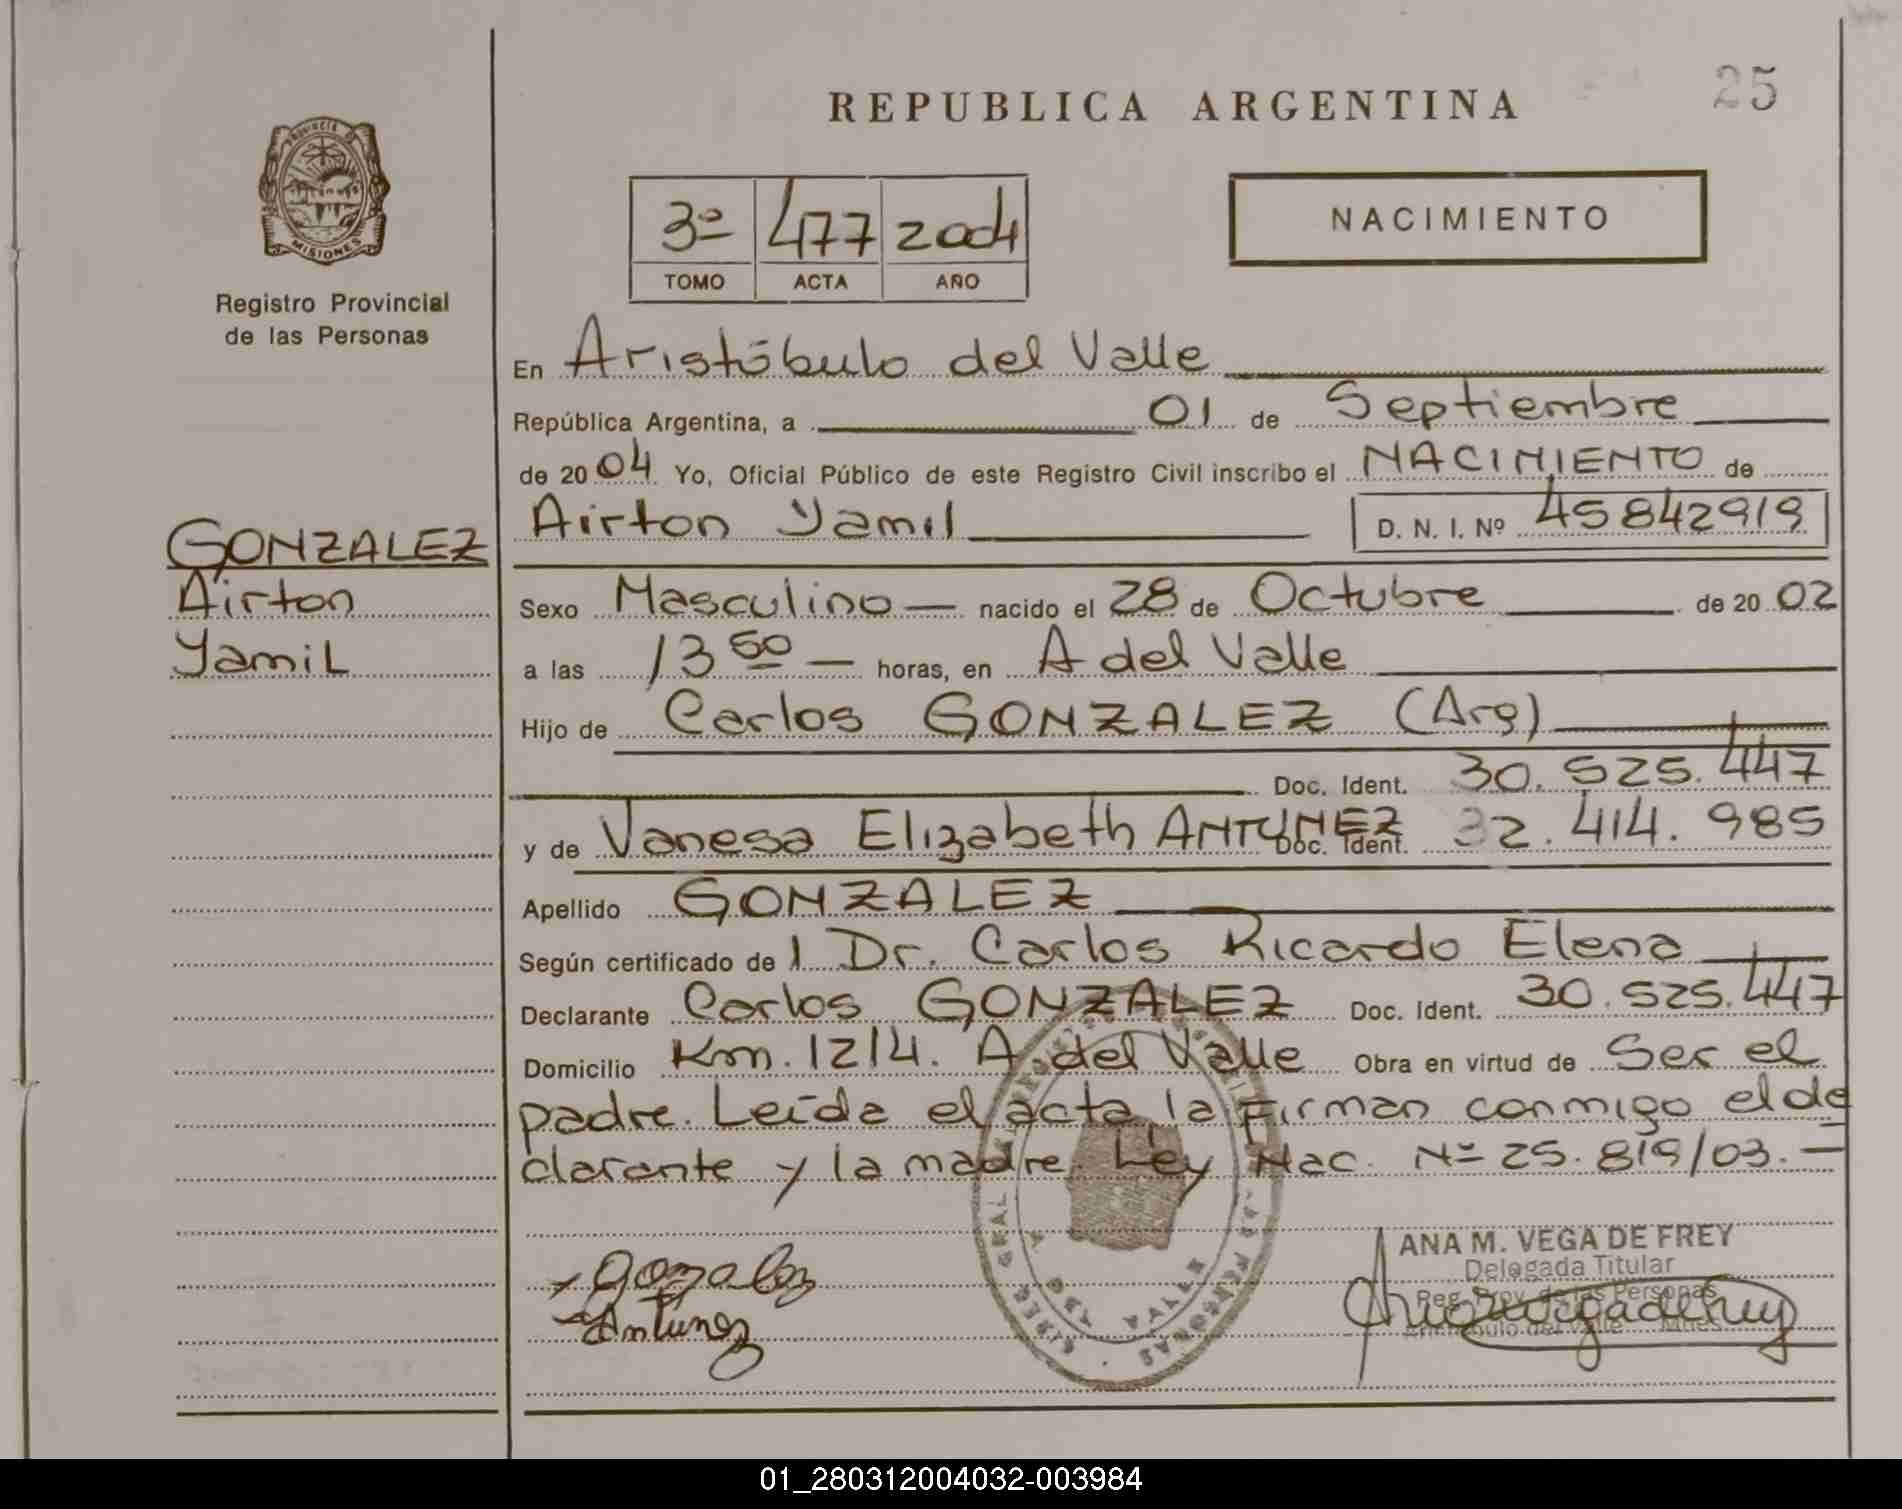 25
REPUBLICA ARGENTINA
PROVINCIA DE
MISIONES
Registro Provincial
de las Personas
3º 477 2004
TOMO ACTA AÑO
NACIMIENTO
En Aristóbulo del Valle
República Argentina, a 01 de Septiembre
de 2004 Yo, Oficial Público de este Registro Civil inscribo el NACIMIENTO de
Airton Yamil D. N. I. Nº 45842919
GONZALEZ
Airton
Yamil
Sexo Masculino nacido el 28 de Octubre de 2002
a las 13 50 horas, en A del Valle
Hijo de Carlos GONZALEZ (Arg)
Doc. Ident. 30.525.447
y de Vanesa Elizabeth ANTUNEZ Doc. Ident. 32.414.985
Apellido GONZALEZ
Según certificado de l Dr. Carlos Ricardo Elena
Declarante Carlos GONZALEZ Doc. Ident. 30.525.447
Domicilio Km. 1214. A del Valle Obra en virtud de Ser el
padre. Leída el acta la Firman conmigo el de
clarante y la madre. Ley Nac. Nº 25.819/03.
Gonzalez
Antunez
ANA M. VEGA DE FREY
Delegada Titular
Reg. Prov. de las Personas
Aristóbulo del Valle Mnes
01_280312004032-003984